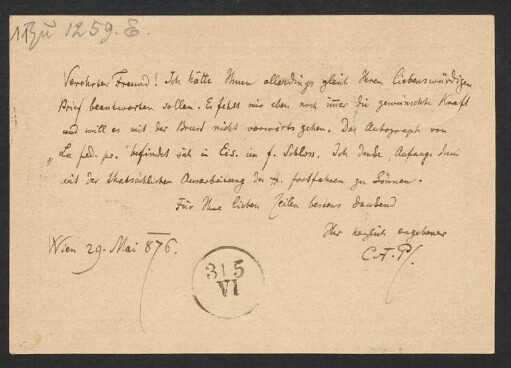 1259.E.
Verehrter Freund! Ich hätte Ihnen allerdings gleich Ihren liebenswürdigen
Brief beantworten sollen. Es fehlt mir eben noch immer die gewünschte Kraft
und will es mit der Brust nicht vorwärts gehen. Das Autograph von
„La fed. pr." befindet sich in Eis. im f. Schloss. Ich denke, Anfangs Juni
mit der thatsächlichen Ausarbeitung des H. fortfahren zu können.
Für Ihre lieben Zeilen bestens dankend
Ihr herzlich ergebener
Wien 29. Mai 876. C. F. P.
31 5
VI